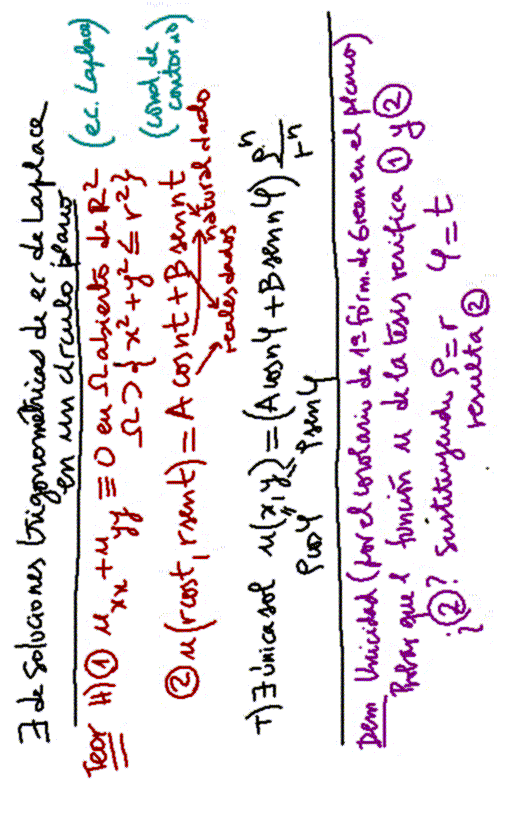 ∃ de soluciones trigonométricas de ec de Laplace
en un círculo plano
Teor H) ① u_xx + u_yy ≡ 0 en Ω abierto de R² (ec. Laplace)
Ω ⊃ {x² + y² ≤ r²}
② u(r cos t, r sen t) = A cos nt + B sen nt (cond. de contorno)
reales dados
natural dado
T) ∃ única sol u(x, y) = (A cos nφ + B sen nφ) ρⁿ/rⁿ
ρ cos φ ρ sen φ
Dem Unicidad (por el corolario de 1ª fórm. de Green en el plano)
Probar que la función u de la tesis verifica ① y ②
¿②? Sustituyendo ρ = r φ = t
resulta ②